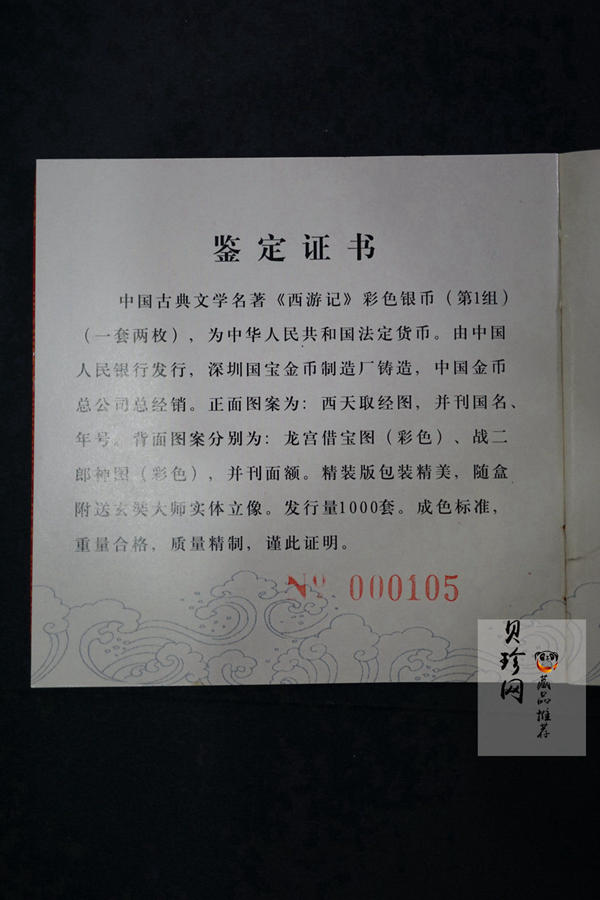 鉴定证书
中国古典文学名著《西游记》彩色银币（第1组）
（一套两枚），为中华人民共和国法定货币。由中国
人民银行发行，深圳国宝金币制造厂铸造，中国金币
总公司总经销。正面图案为：西天取经图，并刊国名、
年号。背面图案分别为：龙宫借宝图（彩色）、战二
郎神图（彩色），并刊面额。精装版包装精美，随盒
附送玄奘大师实体立像。发行量1000套。成色标准，
重量合格，质量精制，谨此证明。
No. 000105
贝珍网
藏品推荐